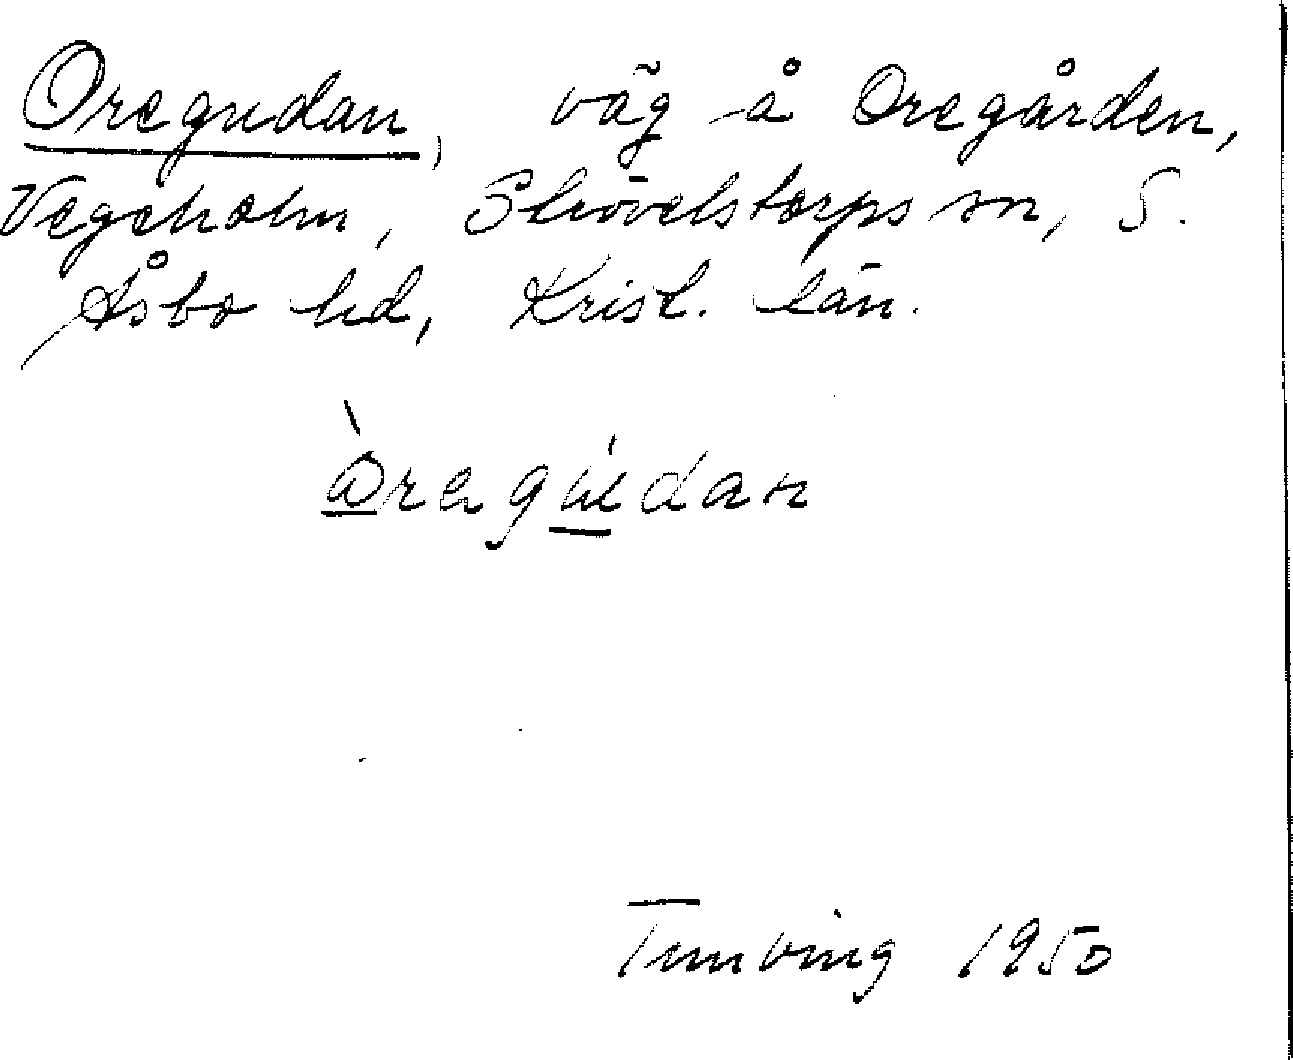 Oregudan, väg å Oregården,
Vegeholm, Skövelstorps sn, S.
Åsbo hd, Krist. län.
Òregúdan
Tunving 1950